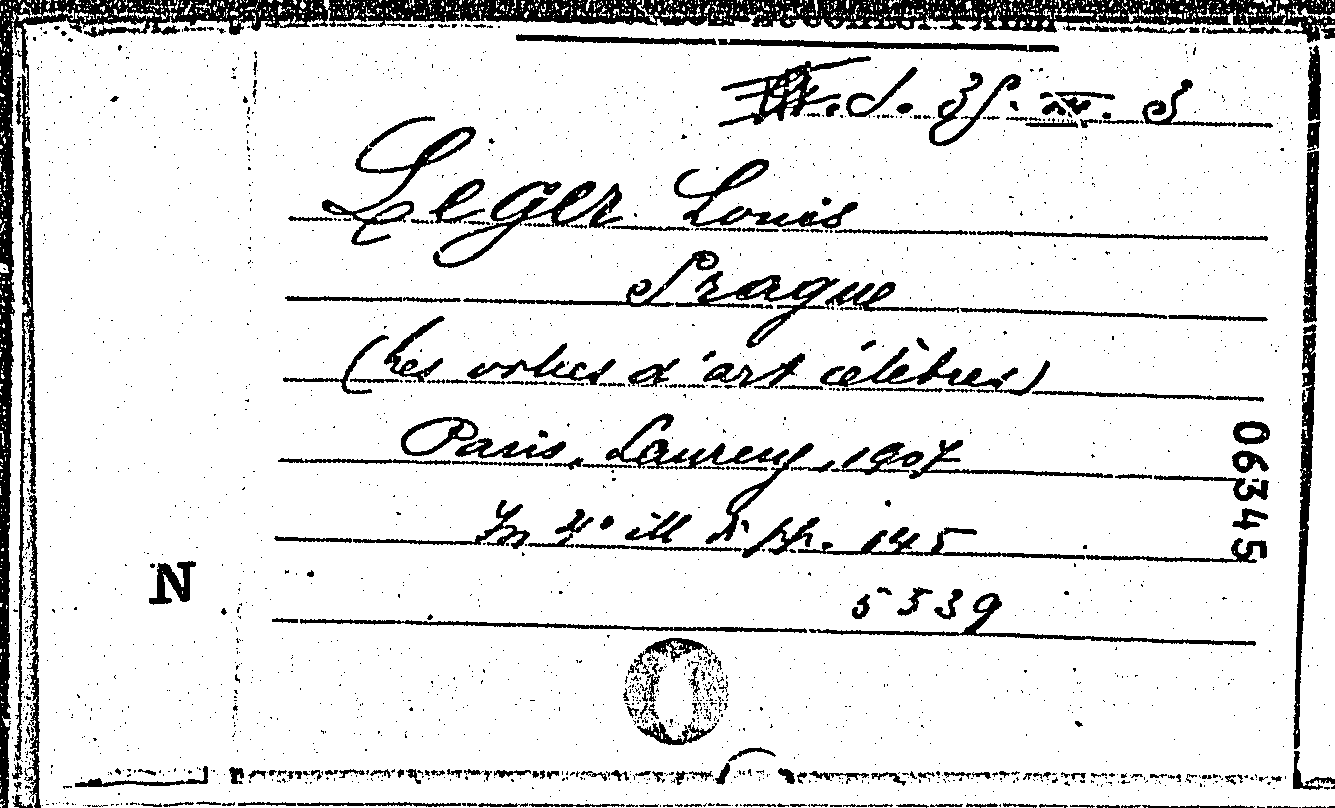 d. 35. 3
Leger Louis
Prague
(Les villes d'art célèbres)
Paris, Laurens, 1907
In 4° ill di pp. 145
5539
06345
N